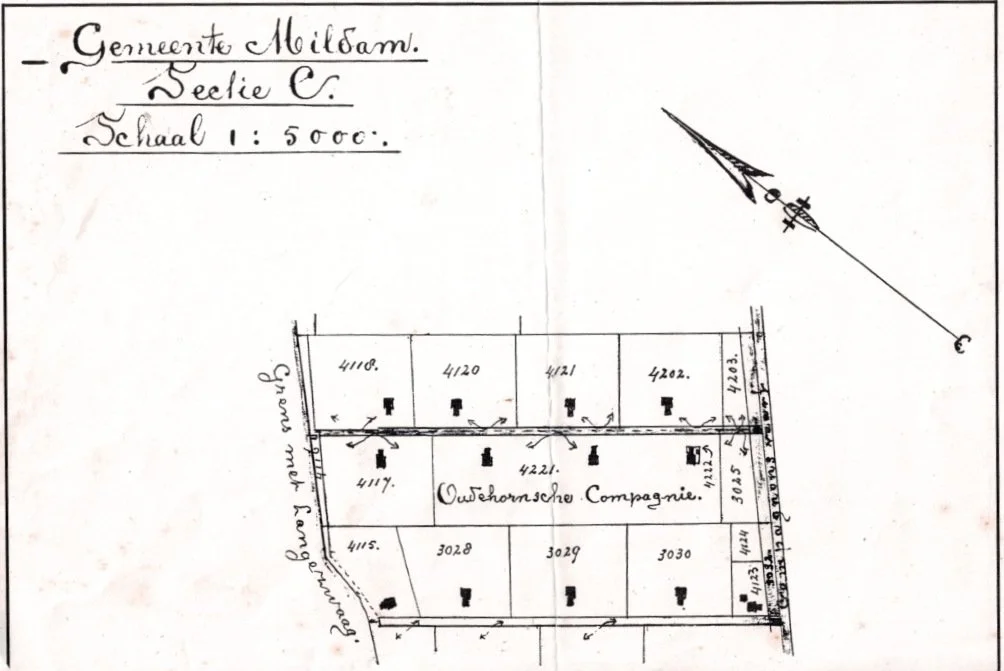 Gemeente Mildam.
Sectie C.
Schaal 1 : 5000.
4118.
4120
4121
4202.
4203.
Grens met Langezwaag.
4116
4117.
4221.
4222
3025
Oudehornsche Compagnie.
4115.
3028
3029
3030
4124
4123
3032
Compagnons vaart